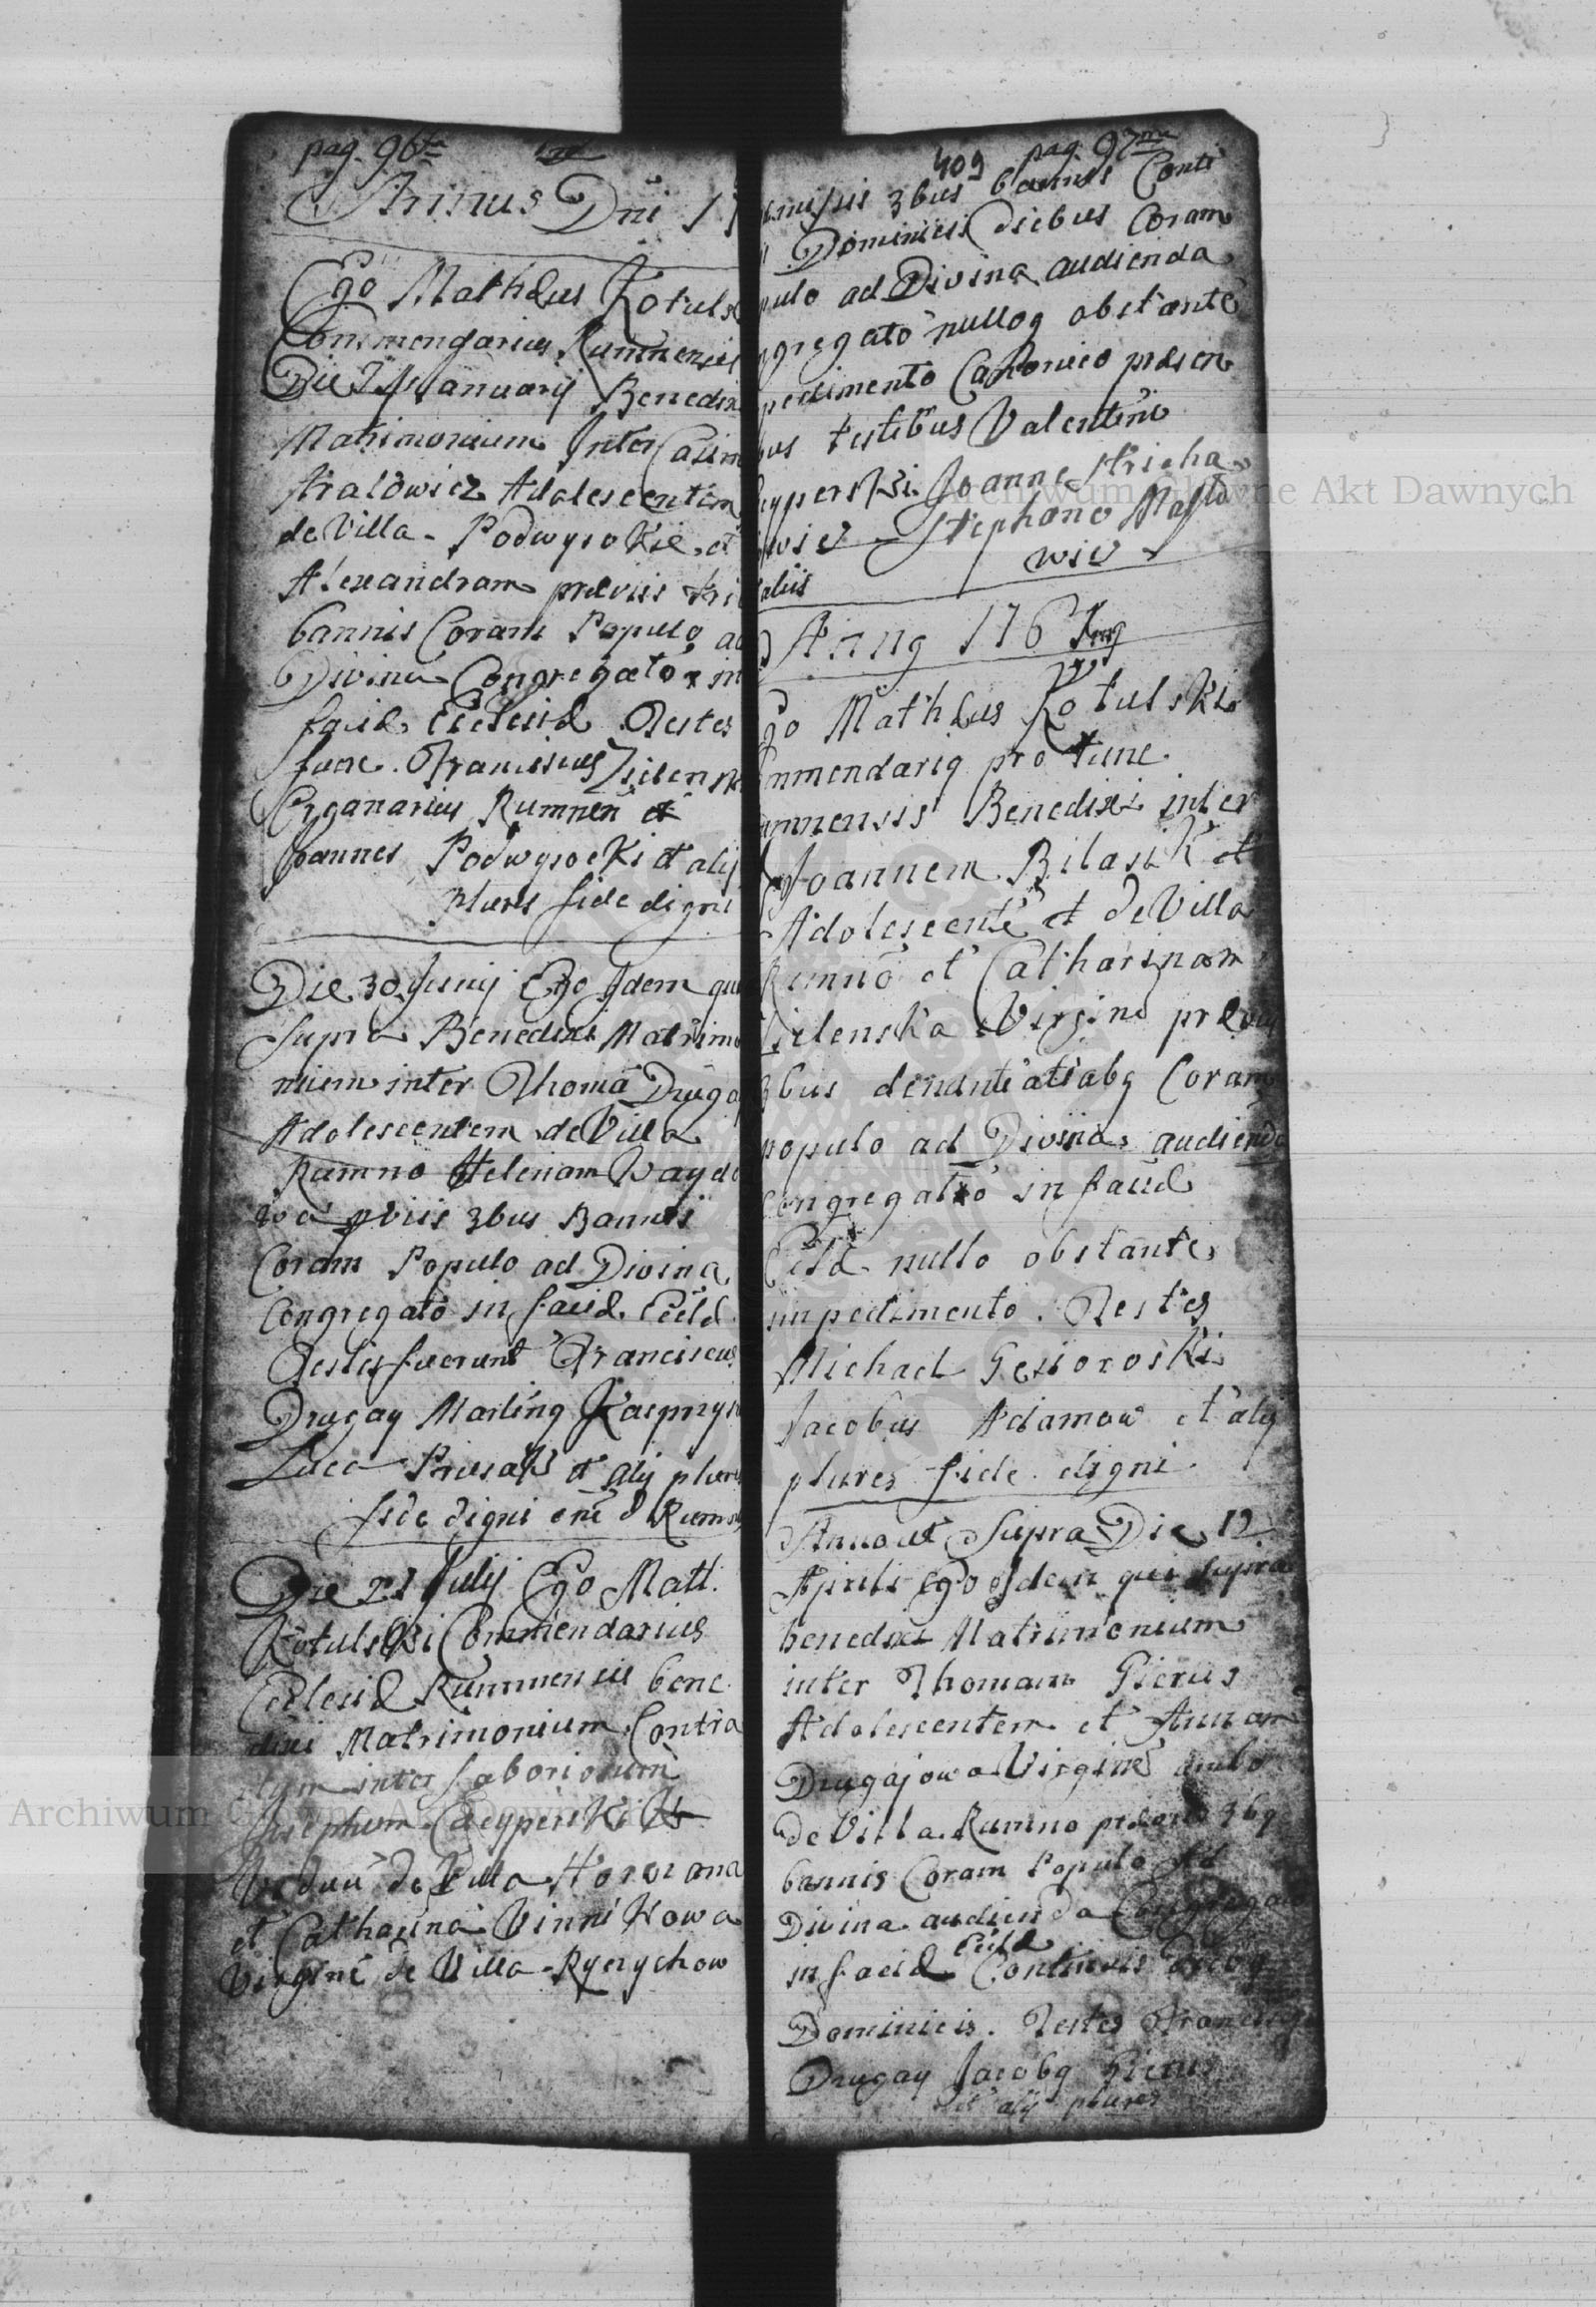 pag. 96ta
Annus Dni 17
Ego Mathæus Kotuls
Commendarius Rumnensis
Die Januarij Benedix
Matrimonium Inter Casim
stralowicz Adolescentem
de Villa Podwysokie et
Alexandram præviis tri
bannis Coram Populo ad
Divina Congregato in
facie Ecclesiæ Testes
fuere Franciscus Zielensk
Organarius Rumnen et
Joannes Podwysocki et alij
plures fide digni
Die 30 Junij Ego Idem qui
Supra Benedixi Matrimo
nium inter Thomā Druga
Adolescentem de Villa
Rumno Helenam Wayd
præviis 3bus Bannis
Coram Populo ad Divina
Congregato in facie Eccla
Testes fuerunt Franciscus
Drugay Martinq Kacprzy
Luca et alij plures
fide digni Rumn
Die 21 Julij Ego Matt.
Kotulski Commendarius
Ecclesiæ Rumnensis bene
dixi Matrimonium Contra
ctum inter Laboriosum
Josephum Cacyperski
Viduū de Villa Horozana
et Catharinā Vinnikowa
Virginē de Villa Ryczychow
409 pag. 97ma
præmissis 3bus bannis Conti
Dominicis Diebus Coram
pulo ad Divina audienda
ngregato nulloq obstante
pedimento Canonico præsen
bus testibus Valentino
cyperski Joanne Stricha
wicz Stephano Masto
wicz
aliis
Annq 1761mq
go Mathæus Kotulski
mmendariq pro tunc
umnensis Benedixi inter
Joannem Bilasik et
Adolescentē et de Villa
Rumno et Catharinam
Zielenska Virginē præviis
3bus denuntiatiobq Coram
populo ad Divina audienda
Congregato in facie
Eccla nullo obstante
impedimento. Testes
Michael Gesioroski
Jacobus Adamow et alij
plures fide digni
Anno ut Supra Die 12
Aprilis Ego Idem qui supra
benedixi Matrimonium
inter Thomam Gierus
Adolescentem et Annam
Drugajowa Virginē ambo
de Villa Rumno præviis 3bq
bannis Coram Populo Ad
Divina audienda Congregato
in facie Eccla Continuis
Dominicis. Testes Franciscq
Drugay Jacobq Gierus
et alij plures
Archiwum Główne Akt Dawnych
Archiwum Główne Akt Dawnych